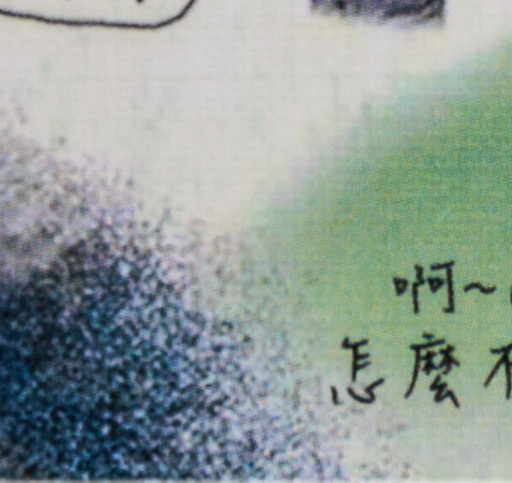 啊~
怎麼